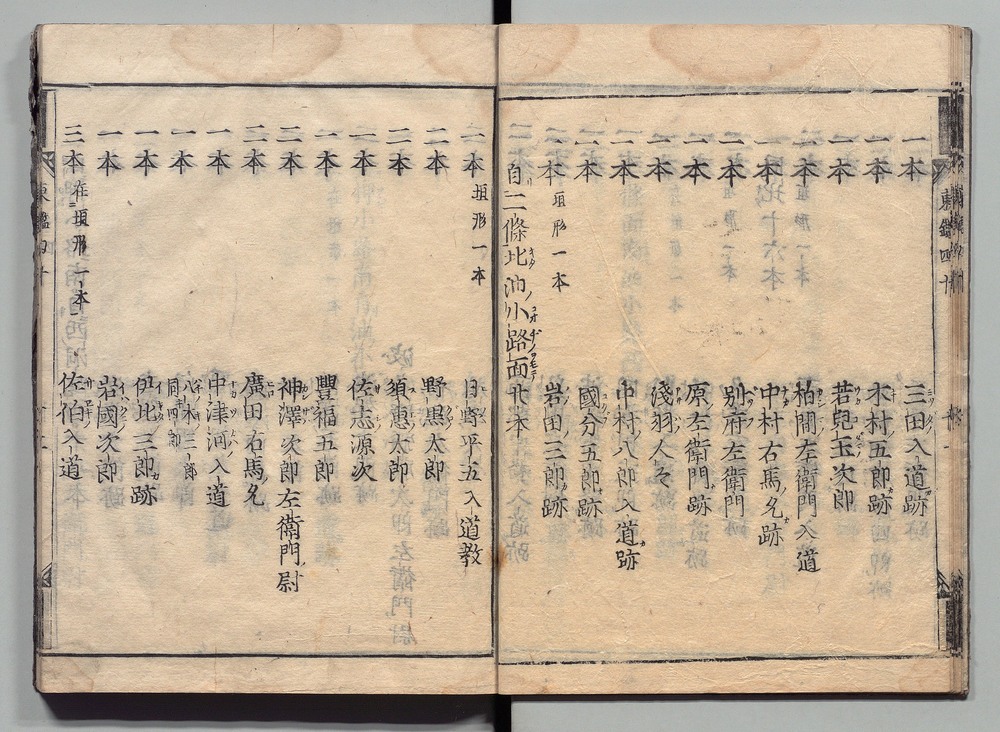 東鑑四十
一本 三田入道跡
一本 木村五郎跡
二本 若兒玉次郎
二本 柏間左衛門入道
一本 中村右馬允跡
二本 別府左衛門
二本 原左衛門跡
二本 淺羽人々
一本 中村八郎入道跡
一本 國分五郎跡
二本 垣形一本 岩田三郎跡
自二條北油小路面廿本
二本 垣形一本 日野平五入道
二本 野黒太郎
二本 須惠太郎
一本 佐志源次
一本 豐福五郎
二本 神澤次郎左衛門尉
二本 廣田右馬允
一本 中津河入道
一本 八木三郎 同四郎
一本 伊北三郎跡
一本 岩國次郎
三本 在垣形一本 佐伯入道
東鑑四十